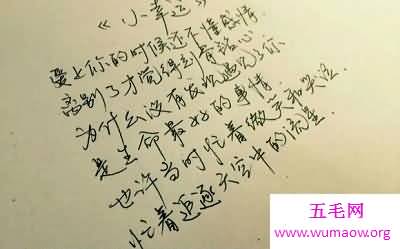 《小幸运》
爱上你的时候还不懂感情
离别了才觉得刻骨铭心
为什么没有发现遇见了你
是生命最好的事情
也许当时忙着微笑和哭泣
忙着追逐天空中的流星
五毛网
www.wumaow.org